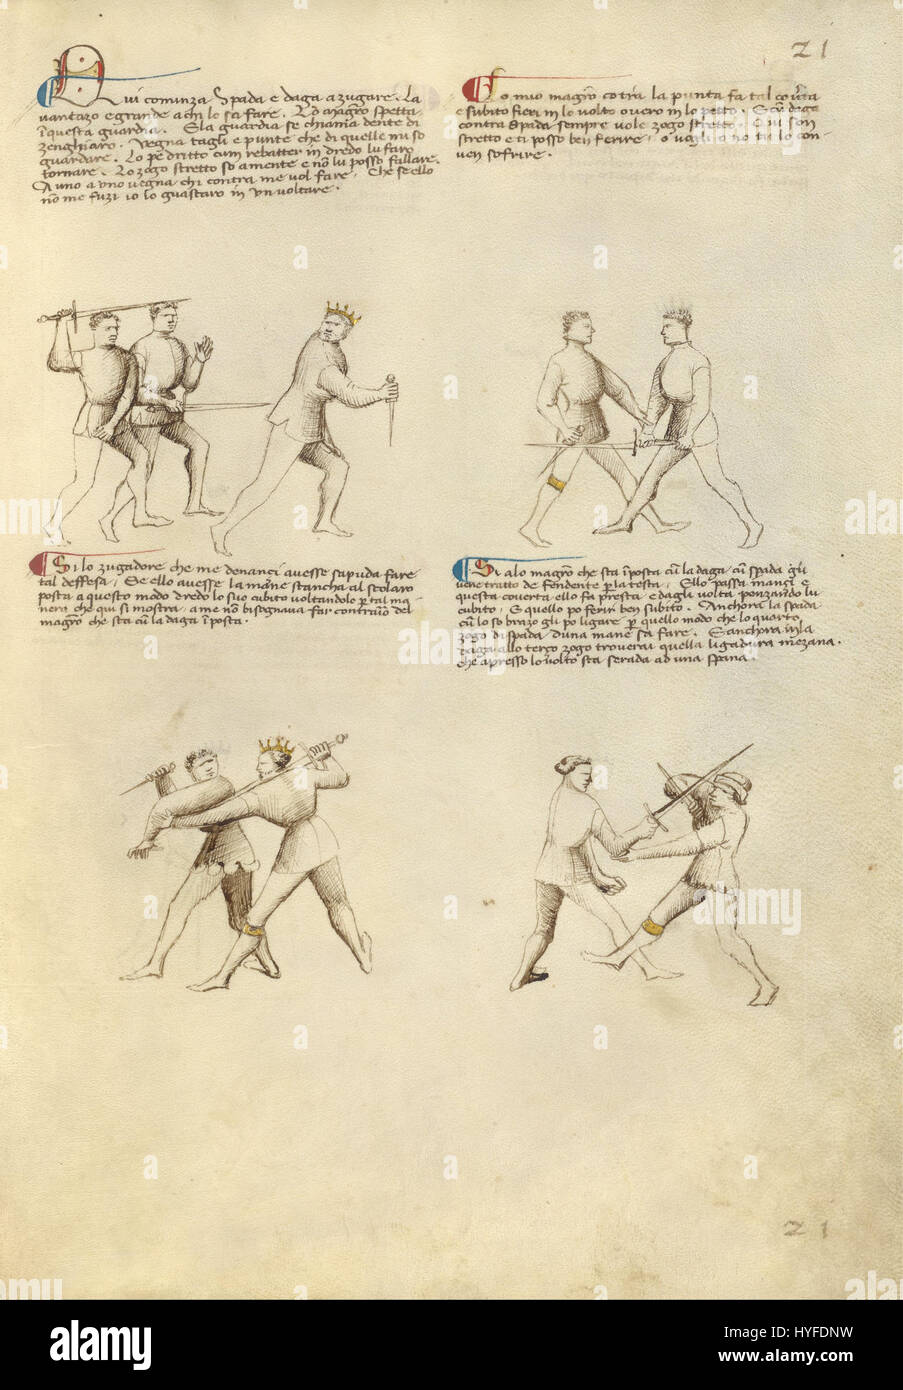 21
Qui cominza Spada e daga a zugare. La
vantazo e grande a chi lo sa fare. Lo magro spetta
i questa guardia. E la guardia se chiama dente di
zenghiaro. Vegna tagli e punte che di quelle mi so
guardare. Lo pe dritto cum rebatter in dredo lu faro
tornare. Lo zogo stretto so a mente e no lu posso fallare.
A uno a uno vegna chi contra me vol fare. Che se ello
no me fuzi io lo guastaro in un voltare.
Lo mio magro cotra la punta fa tal coverta
e subito fieri in lo volto overo in lo petto. E cu daga
contra spada sempre vole zogo stretto. E vi son
stretto e ti posso ben ferire, o vogli o no tu lo con-
ven sofrire.
Si lo zugadore che me denanci avesse sapuda fare
tal deffesa, Se ello avesse la mane stancha al scolaro
posta a questo modo dredo lo suo cubito voltandolo p tal ma-
nera che qui si mostra, a me no bisegnava far contrario del
magro che sta cu la daga i posta.
Si a lo magro che sta i posta cu la daga cu spada gli
vene tratto de fendente p la testa, Ello passa manci e
questa coverta ello fa presta e dagli volta ponzando lu
cubito, E quello po ferir ben subito. Anchora la spada
cu lo so brazo gli po ligare p quello modo che lo quarto
zogo di spada d una mane sa fare. E anchora in la
daga allo terço zogo troverai quella ligadura mezana.
Che apresso lo volto sta serada ad una spana.
21
alamy
Image ID: HYFDNW
www.alamy.com